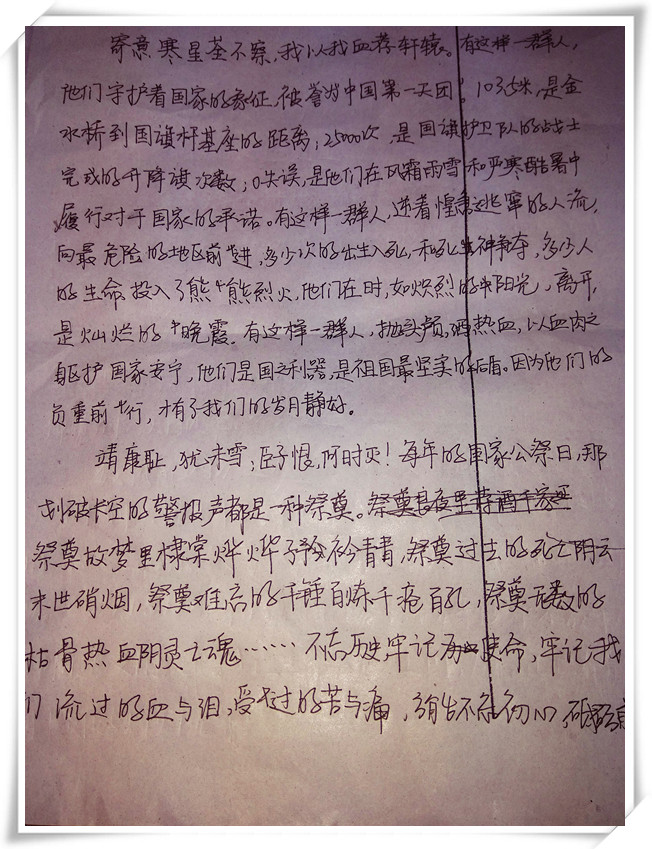 寄意寒星荃不察,我以我血荐轩辕。有这样一群人,
他们守护着国家的象征,被誉为中国第一天团!103.5米,是金
水桥到国旗杆基座的距离;25000次,是国旗护卫队的战士
完成的升降旗次数;0失误,是他们在风霜雨雪和严寒酷暑中
履行对于国家的承诺。有这样一群人,逆着惶恐逃窜的人流,
向最危险的地区前进,多少次的出生入死,和死神争夺,多少人
的生命投入了熊熊烈火,他们在时,如炽烈的阳光,离开,
是灿烂的晚霞。有这样一群人,抛头颅,洒热血,以血肉之
身驱护国家安宁,他们是国之利器,是祖国最坚实的后盾。因为他们的
负重前行,才有了我们的岁月静好。
靖康耻,犹未雪;臣子恨,何时灭!每年的国家公祭日,那
划破长空的警报声都是一种祭奠。祭奠
祭奠故梦里棣棠烨烨子衿青青,祭奠过去的死亡阴云
末世硝烟,祭奠难言的千锤百炼千疮百孔,祭奠无数的
枯骨热血阴灵亡魂……不忘历史,牢记使命,牢记我
们流过的血与泪,受过的苦与痛,